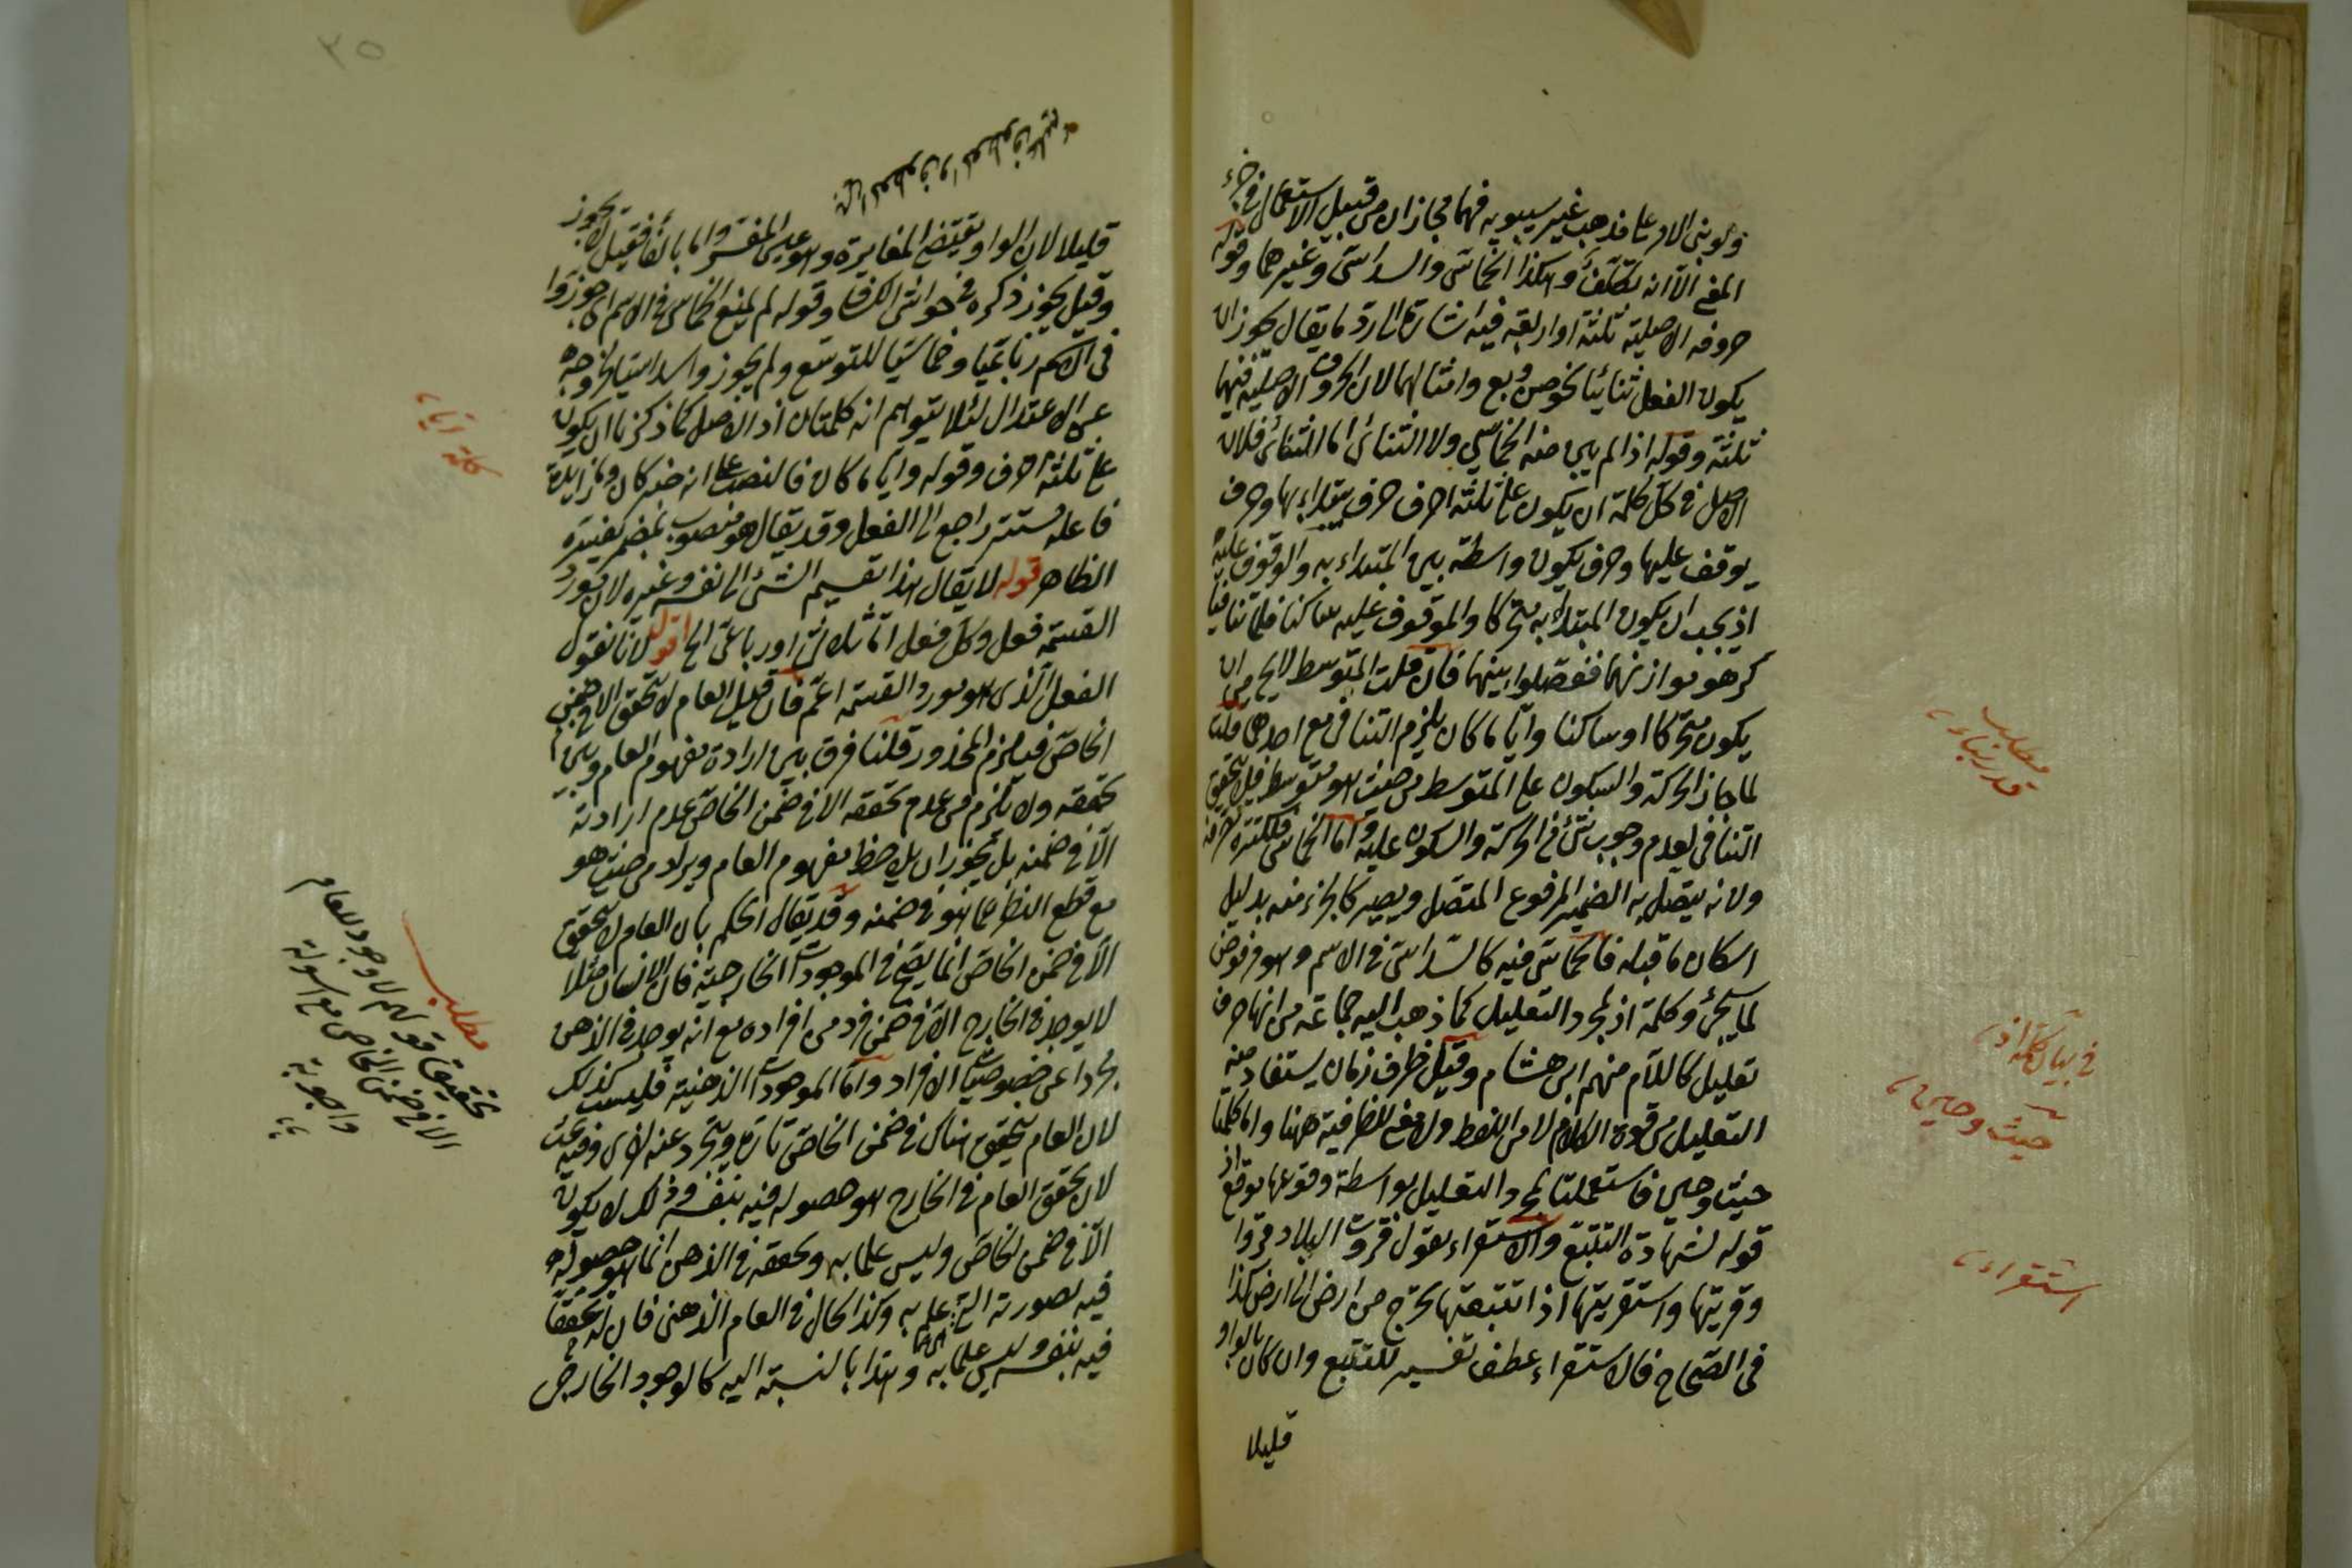 ولو بنى الامر على مذهب غير سيبويه فهما مجازان من قبيل الاستعمال في جزء
المعنى الا انه تكلف وهكذا الخماسي والسداسي وغيرهما وقوله
حروفه الاصلية ثلثة او اربعة فيه اشارة الى رد ما يقال يجوز ان
يكون الفعل ثنائيا نحو صن وبع وامثالهما لان الحروف الاصلية فيهما
ثلثة وقوله اذ لم يبن منه الخماسي ولا الثنائي اما الثنائي فلان
الاصل في كل كلمة ان يكون على ثلثة احرف حرف يبتداء بها وحرف
يوقف عليها وحرف يكون واسطة بين المبتداء به والموقوف عليه
اذ يجب ان يكون المبتداء به متحركا والموقوف عليه ساكنا فلما تنافيا
كرهوا موازنهما ففصلوا بينهما فان قلت المتوسط لا يخ من ان
يكون متحركا او ساكنا وايا ما كان يلزم التنافي مع احدهما قلنا
لما جاز الحركة والسكون على المتوسط من حيث هو متوسط فلم يتحقق
التنافي لعدم وجوب شئ في الحركة والسكون عليه واما الخماسي فلكثرة تصرفه
ولانه يتصل به الضمير المرفوع المتصل ويصير كالجزء منه بدليل
اسكان ما قبله فالخماسي فيه كالسداسي في الاسم وهو مرفوض
لما سيجئ وكلمة اذ لمجرد التعليل كما ذهب اليه جماعة من انها حرف
تعليل كاللام منهم ابن هشام وقيل ظرف زمان يستفاد منه
التعليل من قوة الكلام لا من اللفظ ولا معنى للظرفية ههنا واما كلمتا
حيث وحين فاستعملتا لمجرد التعليل بواسطة وقوعها موقع اذ
قوله لشهادة التتبع والاستقراء يقول قروت البلاد قروا
وقريتها واستقريتها اذا تتبعتها تخرج من ارض الى ارض كذا
في الصحاح فالاستقراء عطف تفسير للتتبع وان كان بالواو
قليلا
مطلب
قدر بناء
في بيان كلمة اذ
حيث وحين
استقراء
٢٥
قليلا لان الواو يقتضي المغايرة وهو عين المفسر واما بالفاء فقيل لا يجوز
وقيل يجوز ذكره في حواشي الكشاف وقوله لم يمنع الخماسي في الاسم اي جوزوا
في الاسم رباعيا وخماسيا للتوسع ولم يجوزوا سداسيا لخروجه
عن الاعتدال لئلا يتوهم انه كلمتان اذ الاصل كما ذكرنا ان يكون
على ثلثة احرف وقوله وايا ما كان فالنصب على انه خبر كان وما زايدة
فاعله مستتر راجع الى الفعل وقد يقال هو منصوب بمضمر يفسره
الظاهر قوله لا يقال هذا تقسيم الشئ الى نفسه وغيره لان مورد
القسمة فعل وكل فعل اما ثلاثي او رباعي الخ قوله لانا نقول
الفعل الذي هو مورد القسمة اعم فان قيل العام لا يتحقق الا في ضمن
الخاص فيلزم المحذور قلنا فرق بين ارادة مفهوم العام وبين
تحققه ولا يلزم من عدم تحققه الا في ضمن الخاص عدم ارادته
الا في ضمنه بل يجوز ان يلاحظ مفهوم العام ويراد من حيث هو
مع قطع النظر عما هو في ضمنه وقد يقال الحكم بان العام لا يتحقق
الا في ضمن الخاص انما يصح في الموجودات الخارجية فان الانسان مثلا
لا يوجد في الخارج الا في ضمن فرد من افراده مع انه يوجد في الذهن
مجردا عن خصوصيات الافراد واما الموجودات الذهنية فليست كذلك
لان العام يتحقق هناك في ضمن الخاص تارة ويتجرد عنه اخرى وفيه بحث
لان تحقق العام في الخارج هو حصوله فيه بنفسه وذلك لا يكون
الا في ضمن الخاص وليس علما به وتحققه في الذهن انما هو حصوله
فيه بصورته التي علم به وكذا الحال في العام الذهني فان له تحققا
فيه بنفسه وليس علما به وهذا بالنسبة اليه كالوجود الخارجي
مطلب
تحقيق قولهم لا وجود للعام
الا في ضمن الخاص مع اسولة
واجوبة